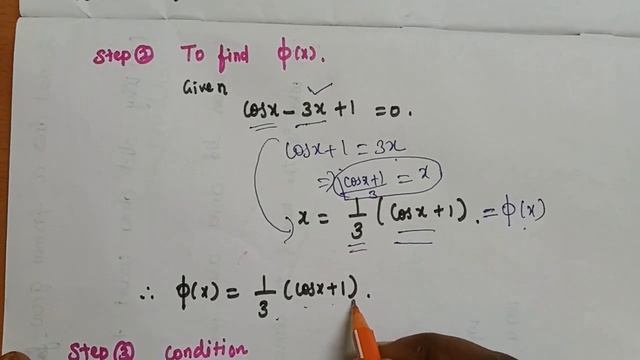 Step ② To find ϕ(x).
Given
cosx - 3x + 1 = 0.
cosx + 1 = 3x
⇒ (cosx+1)/3 = x
x = 1/3 (cosx + 1) . = ϕ(x)
∴ ϕ(x) = 1/3 (cosx + 1) .
Step ③ condition